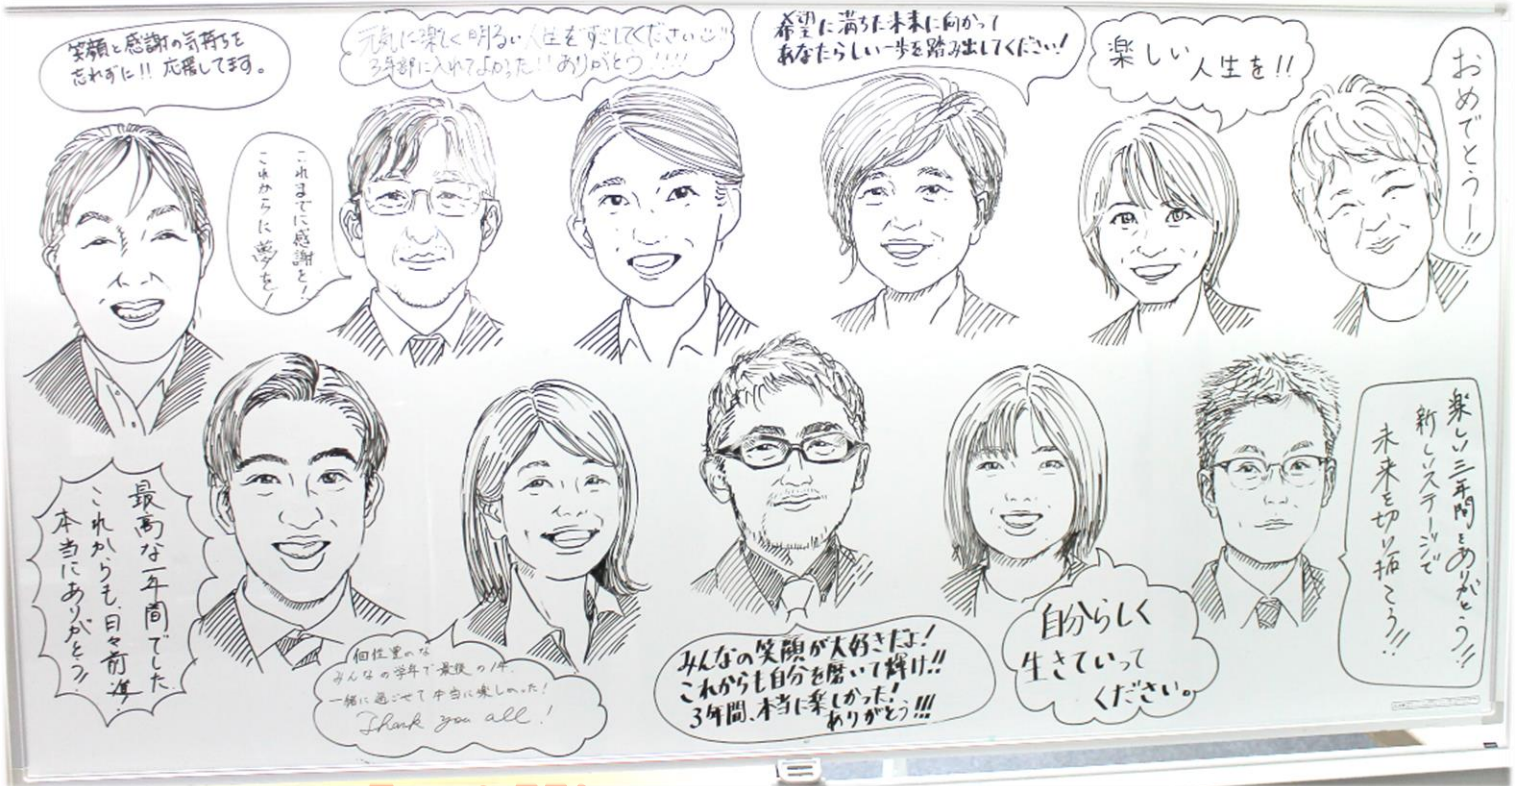 笑顔と感謝の気持ちを
忘れずに!! 応援してます。
元気に楽しく明るい人生をすごしてください
3年部に入れてよかった!! ありがとう!!!!
希望に満ちた未来に向かって
あなたらしい一歩を踏み出してください!
楽しい
人生を!!
おめでとうー!!
これまでに感謝を!
これからに夢を!
最高な一年間でした
これからも、日々前進
本当にありがとう!!
個性豊かな
みんなの学年で最後の1年、
一緒に過ごせて本当に楽しかった!
Thank you all!
みんなの笑顔が大好きだよ!
これからも自分を磨いて輝け!!
3年間、本当に楽しかった!
ありがとう!!!
自分らしく
生きていって
ください。
楽しい三年間をありがとう!!
新しいステージで
未来を切り拓こう!!